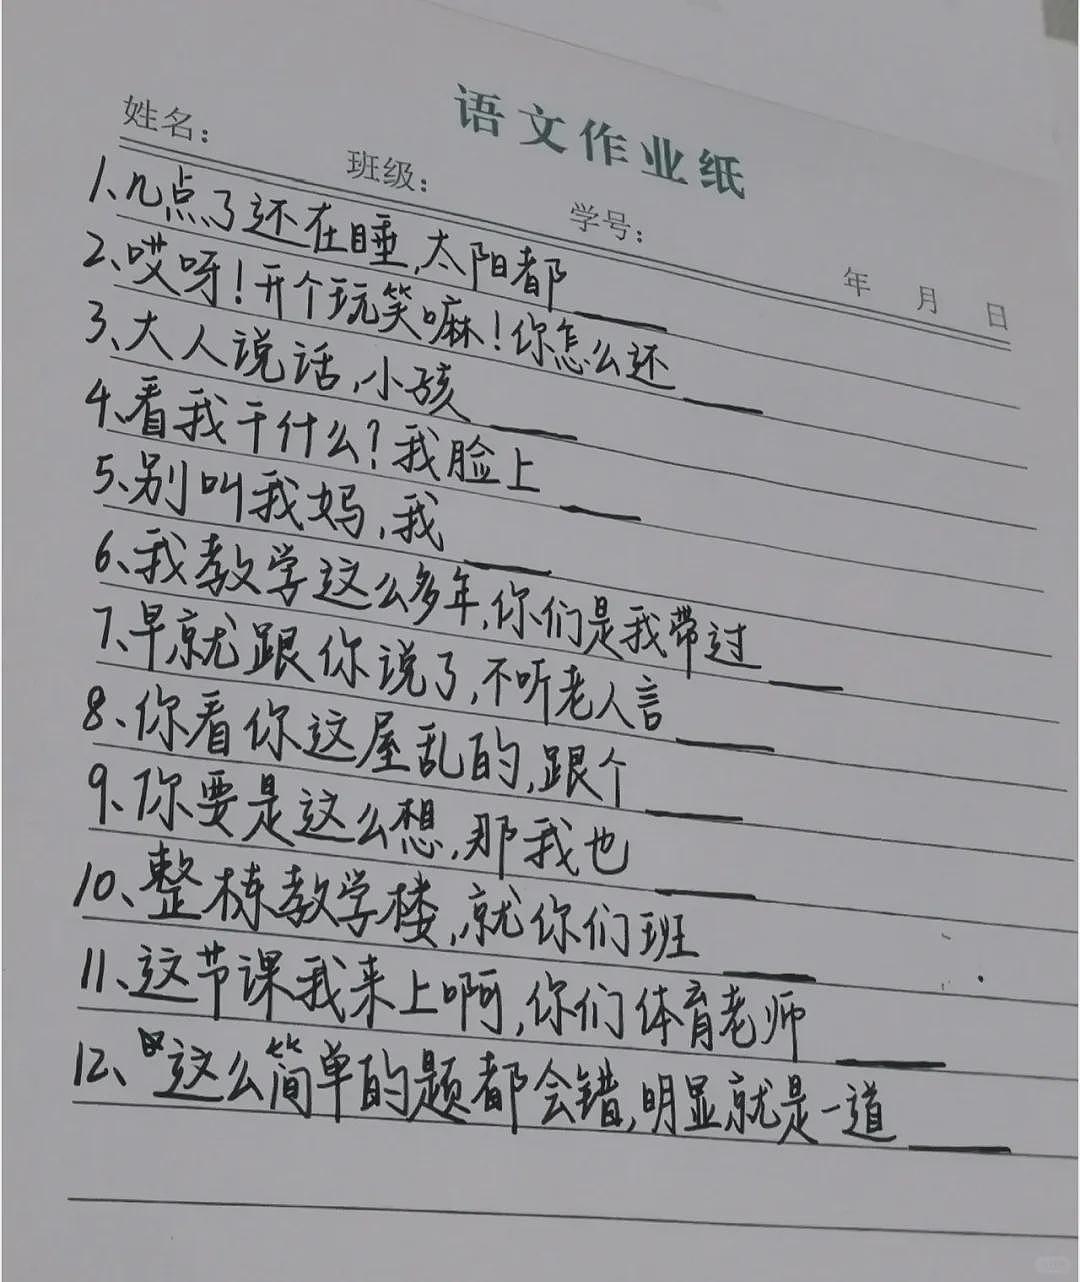 语文作业纸
姓名： 班级： 学号： 年 月 日
1、几点了还在睡,太阳都____
2、哎呀!开个玩笑嘛!你怎么还____
3、大人说话,小孩____
4、看我干什么?我脸上____
5、别叫我妈,我____
6、我教学这么多年,你们是我带过____
7、早就跟你说了,不听老人言____
8、你看你这屋乱的,跟个____
9、你要是这么想,那我也____
10、整栋教学楼,就你们班____
11、这节课我来上啊,你们体育老师____
12、这么简单的题都会错,明显就是一道____